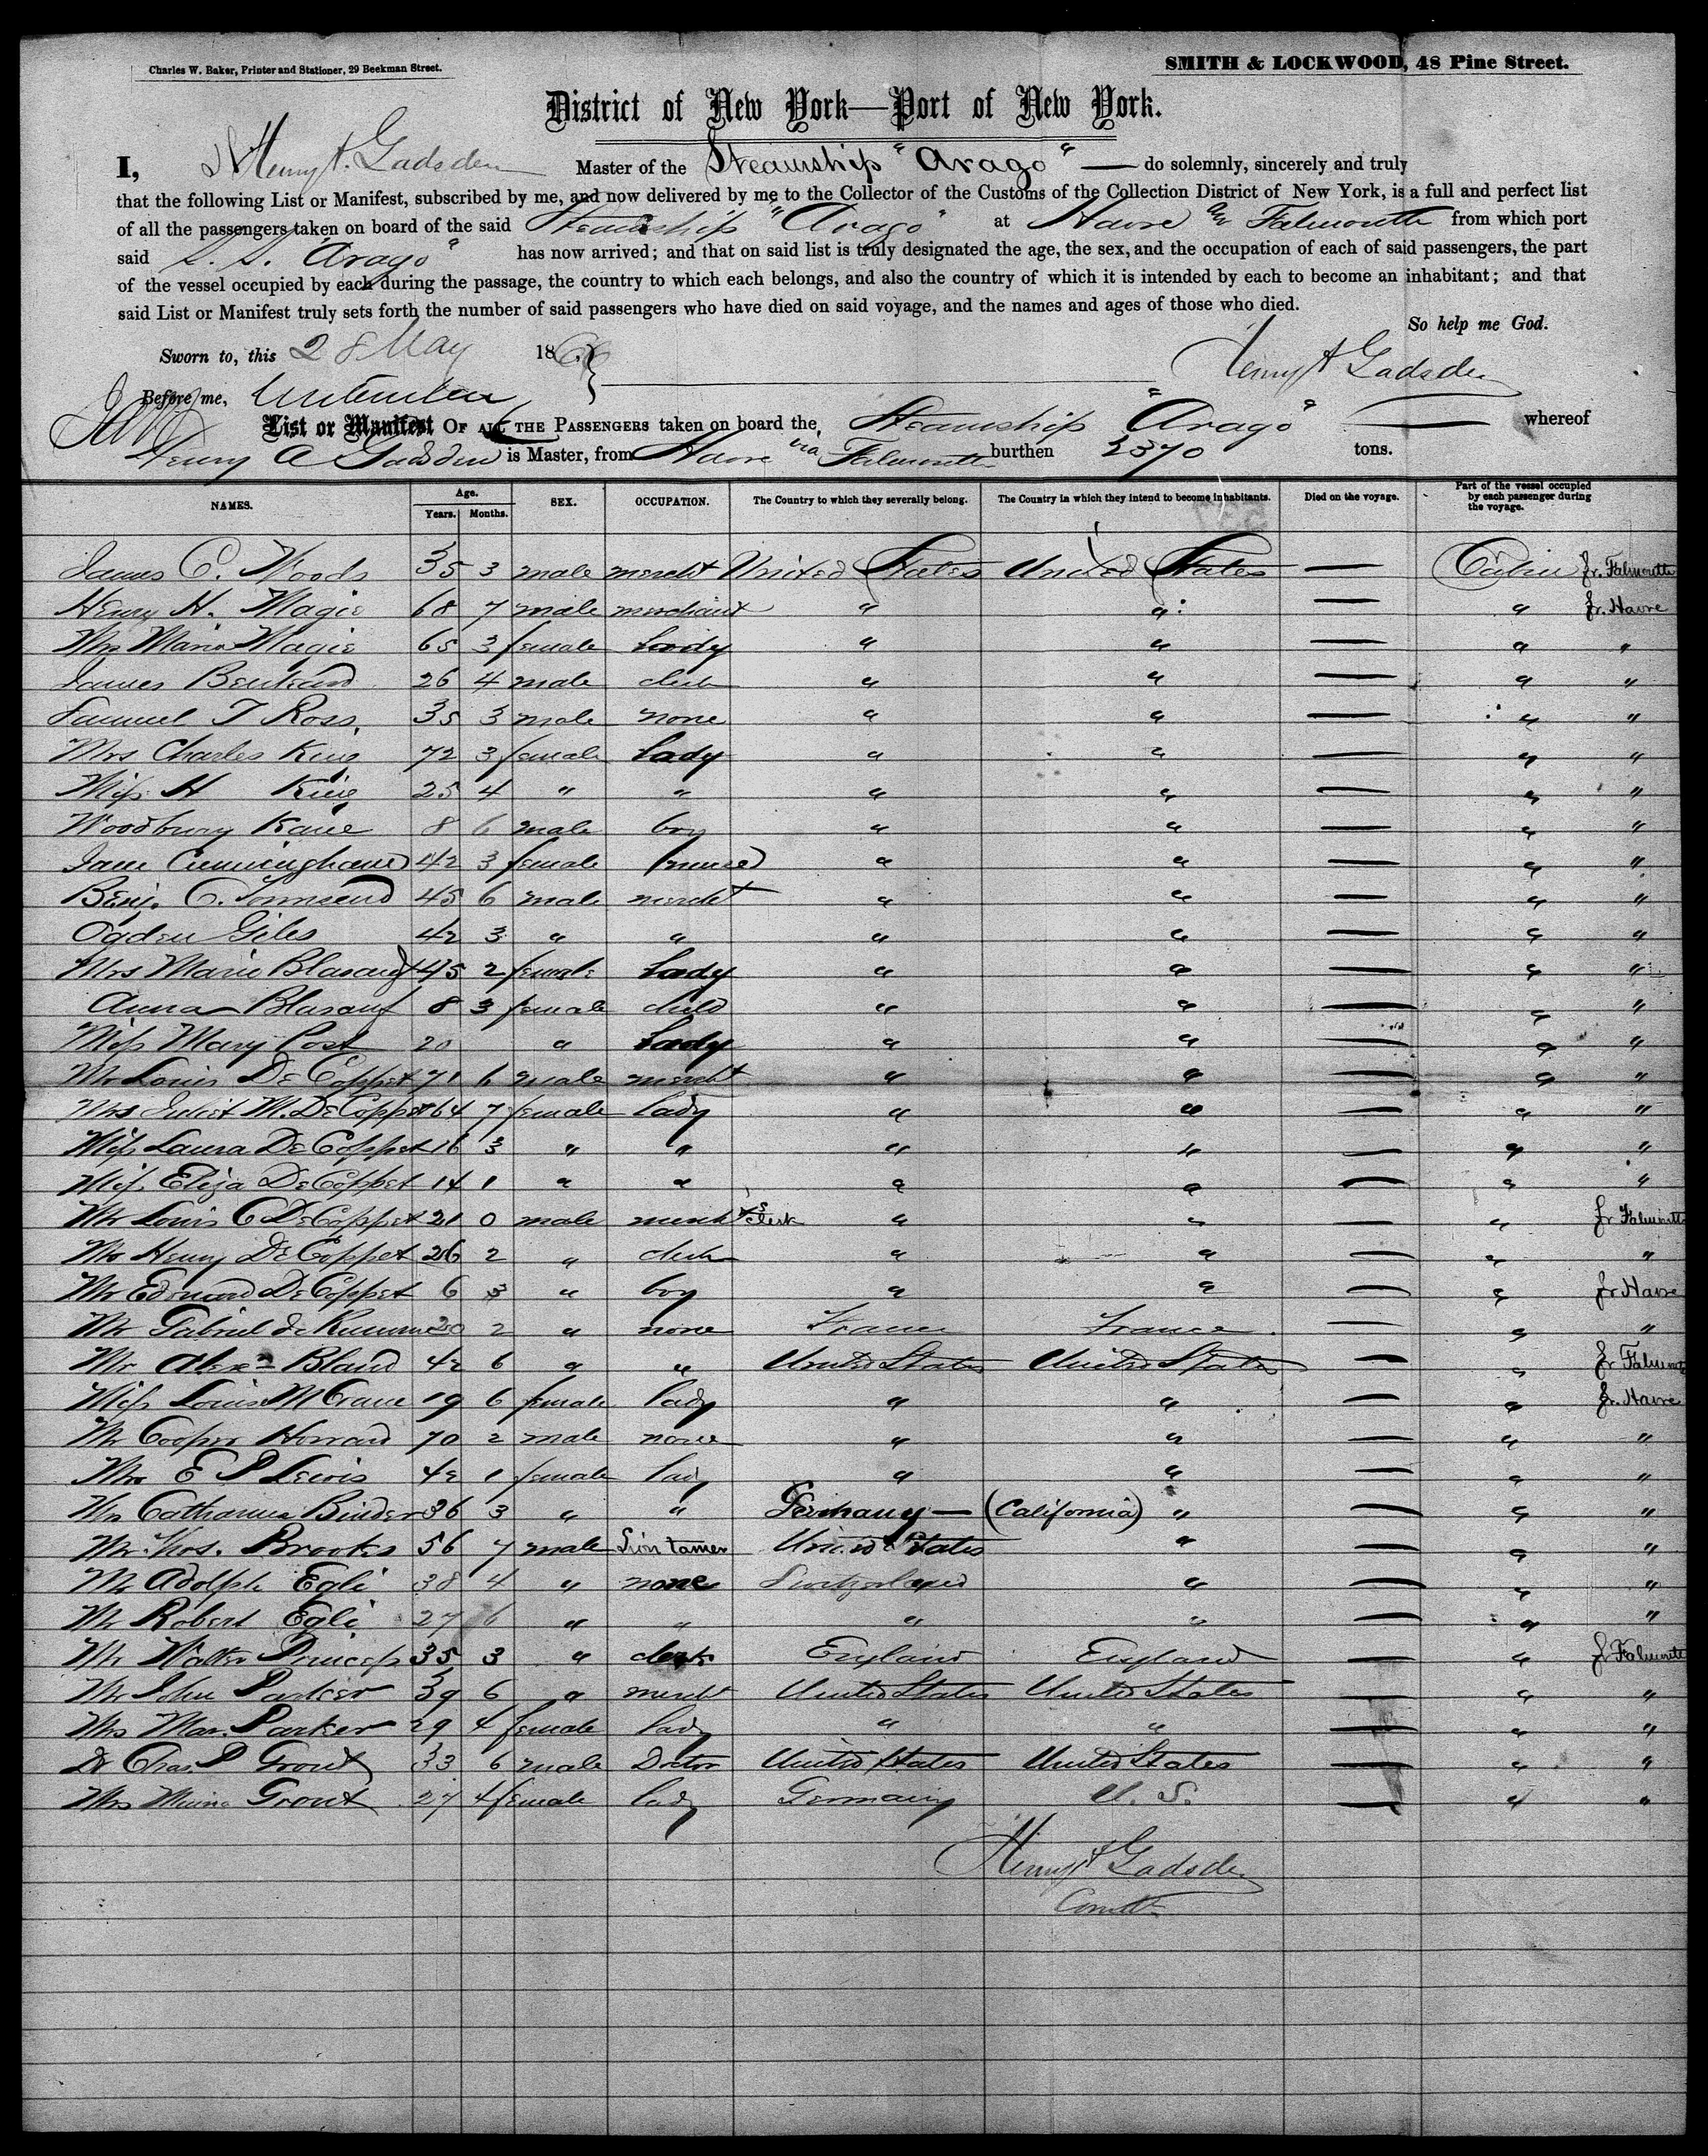 Charles W. Baker, Printer and Stationer, 29 Beekman Street.
SMITH & LOCKWOOD, 48 Pine Street.
District of New York—Port of New York.
I, Henry A. Gadsden Master of the Steamship "Arago" — do solemnly, sincerely and truly
that the following List or Manifest, subscribed by me, and now delivered by me to the Collector of the Customs of the Collection District of New York, is a full and perfect list
of all the passengers taken on board of the said Steamship "Arago" at Havre & Falmouth from which port
said S. S. "Arago" has now arrived; and that on said list is truly designated the age, the sex, and the occupation of each of said passengers, the part
of the vessel occupied by each during the passage, the country to which each belongs, and also the country of which it is intended by each to become an inhabitant; and that
said List or Manifest truly sets forth the number of said passengers who have died on said voyage, and the names and ages of those who died.
So help me God.
Sworn to, this 28 May 1866, } Henry A Gadsden
Before me,
List or Manifest OF ALL THE PASSENGERS taken on board the Steamship "Arago" — whereof
Henry A Gadsden is Master, from Havre via Falmouth burthen 2370 tons.
NAMES. Age. Years. Months. SEX. OCCUPATION. The Country to which they severally belong. The Country in which they intend to become inhabitants. Died on the voyage. Part of the vessel occupied by each passenger during the voyage.
James C. Woods 35 3 male mercht United States United States — Cabin fr. Falmouth
Henry H. Magie 68 7 male merchant " " — " fr. Havre
Mrs Maria Magie 65 3 female Lady " " — " "
James 26 4 male clerk " " — " "
Samuel T Ross, 35 3 male none " " — " "
Mrs Charles King 72 3 female Lady " " — " "
Miss H King 25 4 " " " " — " "
Woodbury Kane 8 6 male boy " " — " "
Jane Cunningham 42 3 female (nurse) " " — " "
Benj. C. Townsend 45 6 male mercht " " — " "
Ogden Giles 42 3 " " " " — " "
Mrs Marie 45 2 female Lady " " — " "
Anna 8 3 female child " " — " "
Miss Mary Post 20 " Lady " " — " "
Mr Louis De Coppet 71 6 male mercht " " — " "
Mrs Juliet M. De Coppet 64 7 female lady " " — " "
Miss Laura De Coppet 16 3 " " " " — " "
Miss Eliza De Coppet 14 1 " " " " — " "
Mr Louis C De Coppet 21 0 male mercht's clerk " " — " fr Falmouth
Mr Henry De Coppet 26 2 " clerk " " — " "
Mr Edouard De Coppet 6 3 " boy " " — " fr Havre
Mr Gabriel de 20 2 " none France France — " "
Mr Alexr Bland 42 6 " " United States United States — " fr Falmouth
Miss Louise M Crane 19 6 female lady " " — " fr. Havre
Mr Cooper Howard 70 2 male none " " — " "
Mrs E P Lewis 42 1 female lady " " — " "
Mrs Catharina Binder 36 3 " " Germany — (California) " — " "
Mr Thos. Brooks 56 7 male Lion tamer United States " — " "
Mr Adolph Egli 38 4 " none Switzerland " — " "
Mr Robert Egli 27 6 " " " " — " "
Mr Walter Princep 35 3 " clerk England England — " fr Falmouth
Mr John Parker 39 6 " mercht United States United States — " "
Mrs Mar. Parker 29 4 female lady " " — " "
Dr Chas P Grout 33 6 male Doctor United States United States — " "
Mrs Minna Grout 27 4 female lady Germany U. S. — " "
Henry A Gadsden